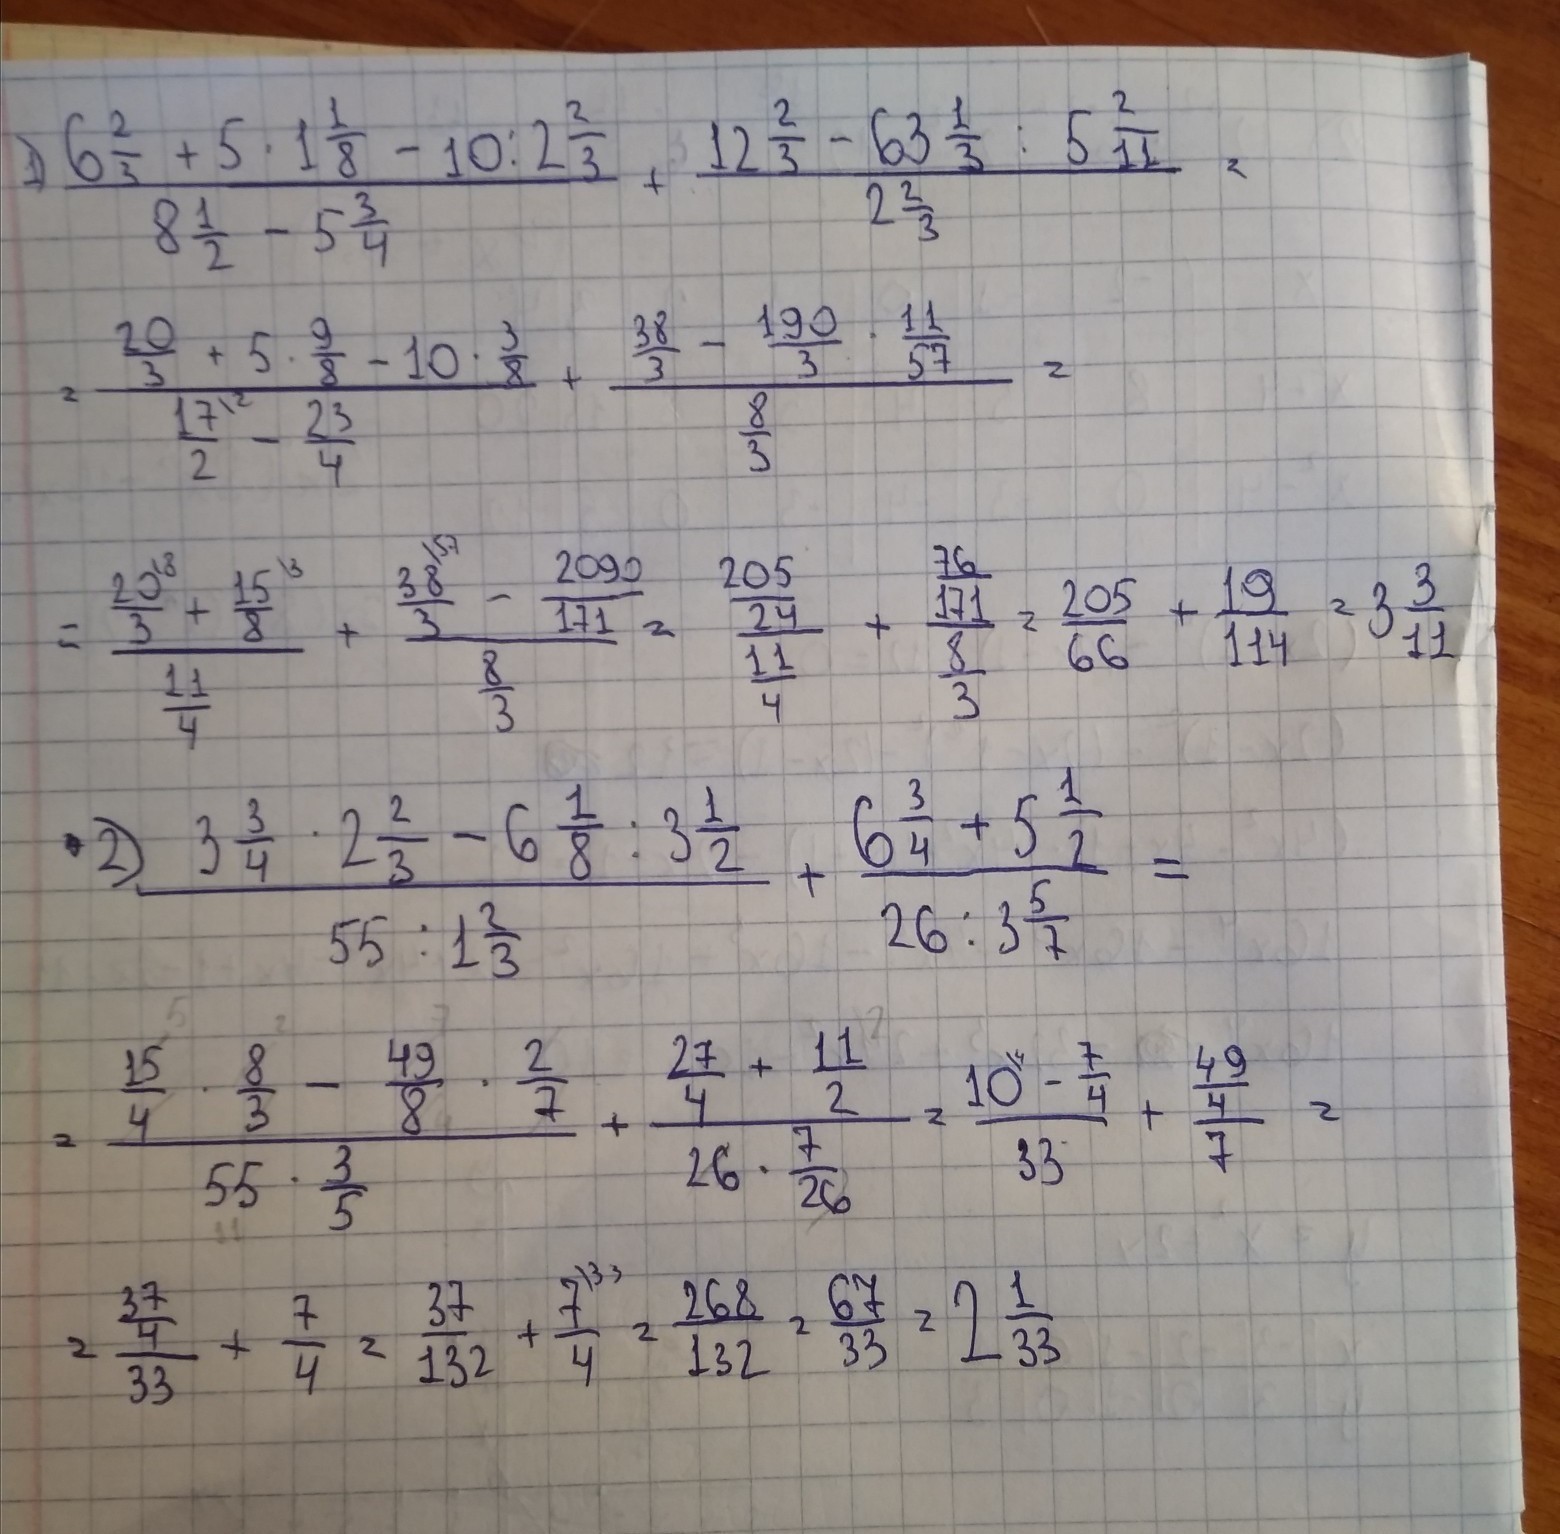 1) (6 2/3 + 5 · 1 1/8 − 10 : 2 2/3)/(8 1/2 − 5 3/4) + (12 2/3 − 63 1/3 : 5 2/11)/(2 2/3) =
= (20/3 + 5 · 9/8 − 10 · 3/8)/(17\2/2 − 23/4) + (38/3 − 190/3 · 11/57)/(8/3) =
= (20\8/3 + 15\3/8)/(11/4) + (38\57/3 − 2090/171)/(8/3) = (205/24)/(11/4) + (76/171)/(8/3) = 205/66 + 19/114 = 3 3/11
2) (3 3/4 · 2 2/3 − 6 1/8 : 3 1/2)/(55 : 1 2/3) + (6 3/4 + 5 1/2)/(26 : 3 5/7) =
= (15/4 · 8/3 − 49/8 · 2/7)/(55 · 3/5) + (27/4 + 11/2)/(26 · 7/26) = (10\4 − 7/4)/33 + (49/4)/7 =
= (37/4)/33 + 7/4 = 37/132 + 7\33/4 = 268/132 = 67/33 = 2 1/33